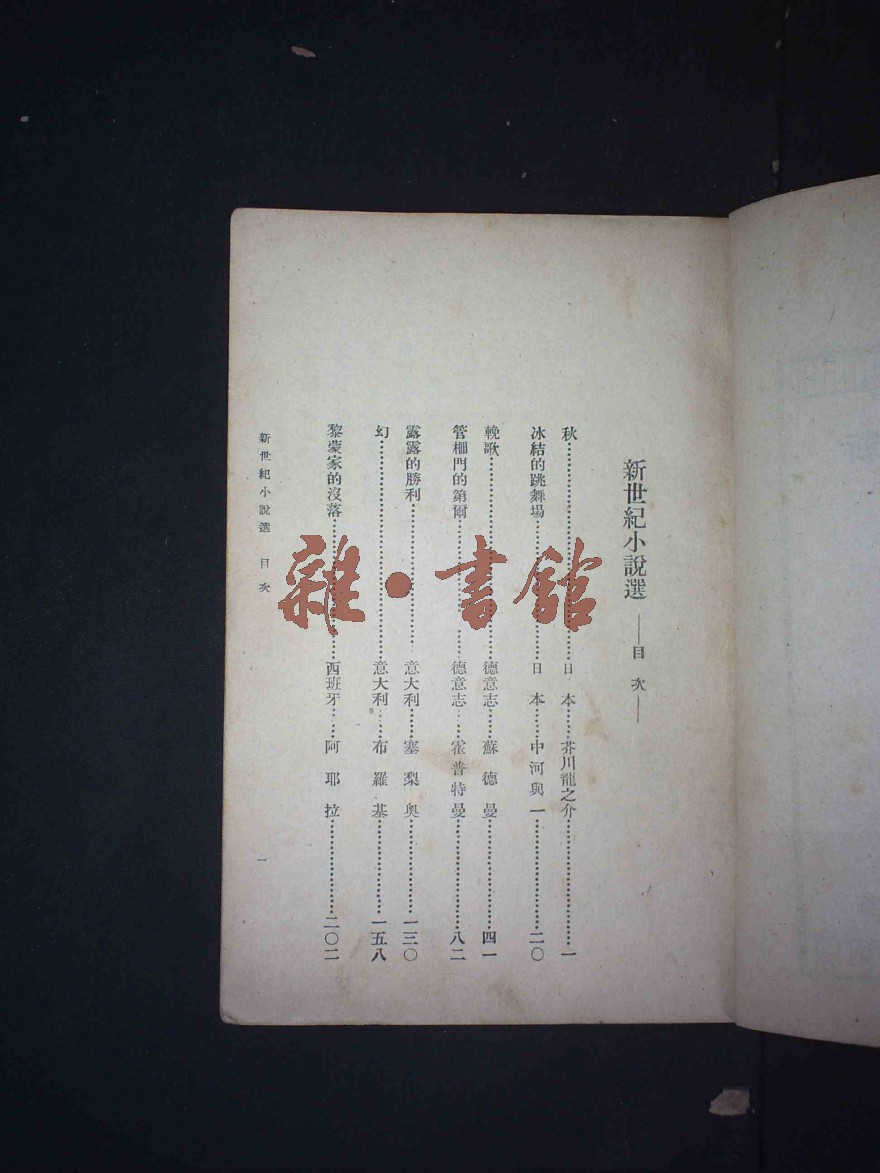 新世紀小說選 ——目次——
秋……日本……芥川龍之介……一
冰結的跳舞場……日本……中河與一……二〇
輓歌……德意志……蘇德曼……四一
管柵門的第爾……德意志……霍普特曼……八二
露露的勝利……意大利……塞梨奧……一三〇
幻……意大利……布羅基……一五八
黎蒙家的沒落……西班牙……阿耶拉……二〇二
新世紀小說選 目次
一
雜·書館